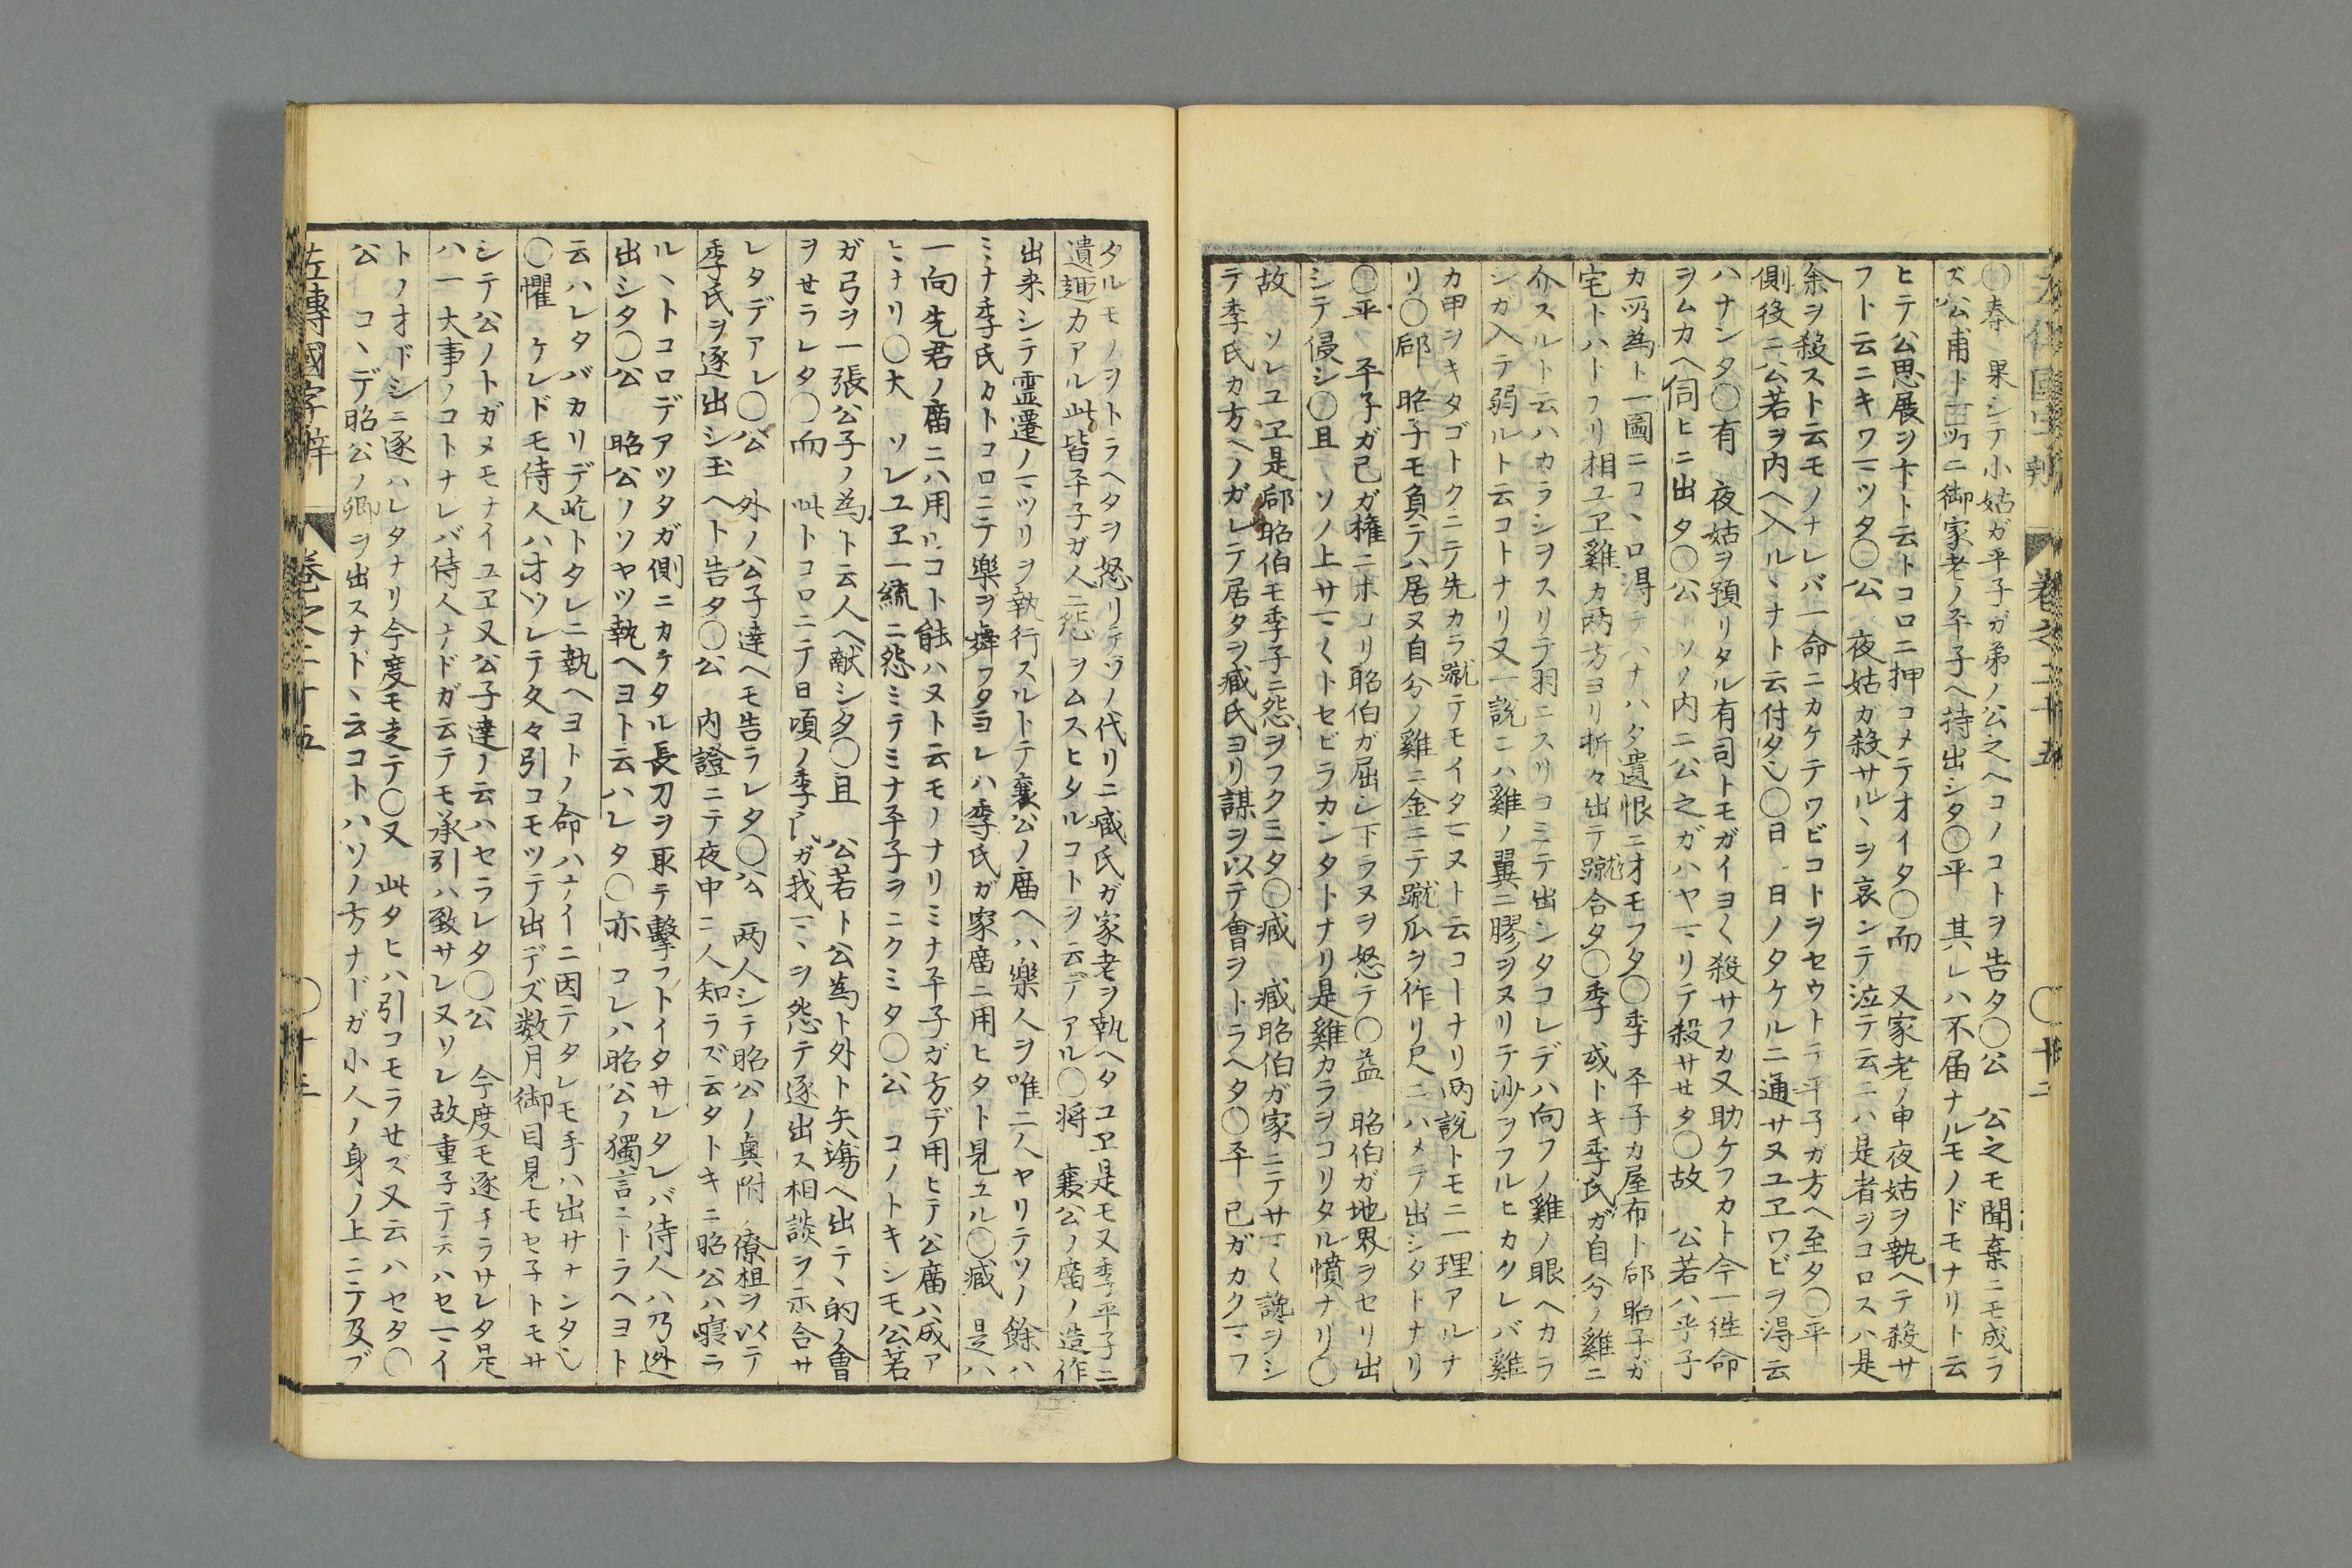 〇秦、果シテ小姑ガ平子ガ弟ノ公之ヘコノコトヲ告タ〇公　公之モ聞棄ニモ成ラ
ズ公甫ト一所ニ御家老ノ平子ヘ持出シタ〇平　其レハ不届ナルモノドモナリト云
ヒテ公思展ヲ卞ト云トコロニ押コメテオイタ〇而　又家老ノ申夜姑ヲ執ヘテ殺サ
フト云ニキワマツタ〇公　夜姑ガ殺サルヽヲ哀ンテ泣テ云ニハ是者ヲコロスハ是
余ヲ殺スト云モノナレバ一命ニカケテワビコトヲセウトテ平子ガ方ヘ至タ〇平
側後ニ公若ヲ内ヘ入ルヽナト云付タ〇日　日ノタケルニ通サヌユヱワビヲ得云
ハナンタ〇有　夜姑ヲ預リタル有司トモガイヨ〱殺サフカ又助ケフカト今一徃命
ヲムカヘ伺ヒニ出タ〇公　ソノ内ニ公之ガハヤマリテ殺サセタ〇故　公若ハ平子
カ所為ト一圖ニコヽロ得テハナハタ遺恨ニオモフタ〇季　平子カ屋布ト郈昭子ガ
宅トハトフリ相ユヱ雞カ両方ヨリ折々出テ蹴合タ〇季　或トキ季氏ガ自分ノ雞ニ
介スルト云ハカラシヲスリテ羽ニスリコミテ出シタコレデハ向フノ雞ノ眼ヘカラ
シガ入テ弱ルト云コトナリ又一説ニハ雞ノ翼ニ膠ヲヌリテ沙ヲフルヒカクレバ雞
カ甲ヲキタゴトクニテ先カラ蹴テモイタマヌト云コトナリ両説トモニ一理アルナ
リ〇郈　昭子モ負テハ居ヌ自分ノ雞ニ金ニテ蹴爪ヲ作リ尺ニハメテ出シタトナリ
〇平、平子ガ己ガ権ニホコリ昭伯ガ屈シ下ラヌヲ怒テ〇益　昭伯ガ地界ヲセリ出
シテ侵シ〇且　ソノ上サマ〱トセビラカンタトナリ是雞カラヲコリタル憤ナリ〇
故　ソレユヱ是郈昭伯モ季子ニ怨ヲフクミタ〇臧　臧昭伯ガ家ニテサマ〱讒ヲシ
テ季氏カ方ヘノガレテ居タヲ臧氏ヨリ謀ヲ以テ會ヲトラヘタ〇平　己ガカクマフ
左傳國字辨　巻之二十五　〇十二
タルモノヲトラヘタヲ怒リテソノ代リニ臧氏ガ家老ヲ執ヘタユヱ是モ又季平子ニ
遺趣カアル此皆平子ガ人ニ怨ヲムスヒタルコトヲ云デアル〇将　襄公ノ廟ノ造作
出来シテ霊遷ノマツリヲ執行スルトテ襄公ノ廟ヘハ樂人ヲ唯二人ヤリテソノ餘ハ
ミナ季氏カトコロニテ樂ヲ舞フタヨレハ季氏ガ家廟ニ用ヒタト見ユル〇臧　是ハ
一向先君ノ廟ニハ用ルコト能ハヌト云モノナリミナ平子ガ方デ用ヒテ公廟ハ成ア
ヒナリ〇大　ソレユヱ一統ニ怨ミテミナ平子ヲニクミタ〇公　コノトキシモ公若
ガ弓ヲ一張公子ノ為ト云人ヘ献シタ〇且　公若ト公為ト外ト矢塲ヘ出テヽ的ノ會
ヲセラレタ〇而　此トコロニテ日頃ノ季氏ガ我マヽヲ怨テ逐出ス相談ヲ示合サ
レタデアレ〇公　外ノ公子達ヘモ告ラレタ〇公　两人シテ昭公ノ奥附ノ僚柤ヲ以テ
季氏ヲ逐出シ玉ヘト告タ〇公　内證ニテ夜中ニ人知ラズ云タトキニ昭公ハ寝ラ
ルヽトコロデアツタガ側ニカケタル長刀ヲ取テ擊フトイタサレタレバ侍人ハ乃迯
出シタ〇公　昭公ノソヤツ執ヘヨト云ハレタ〇亦　コレハ昭公ノ獨言ニトラヘヨト
云ハレタバカリデ屹トタレニ執ヘヨトノ命ハナイニ因テタレモ手ハ出サナンタ
〇懼　ケレドモ侍人ハオソレテ久々引コモツテ出デズ数月御目見モセ子トモサ
シテ公ノトガメモナイユヱ又公子達ノ云ハセラレタ〇公　今度モ逐チラサレタ是
ハ一大事ノコトナレバ侍人ナドガ云テモ承引ハ致サレヌソレ故重子テ云ハセマイ
トノオドシニ逐ハレタナリ今度モ走テ〇又　此タヒハ引コモラセズ又云ハセタ〇
公　コヽデ昭公ノ卿ヲ出スナドヽ云コトハソノ方ナドガ小人ノ身ノ上ニテ及ブ
左傳國字辨　巻之二十五　〇十三